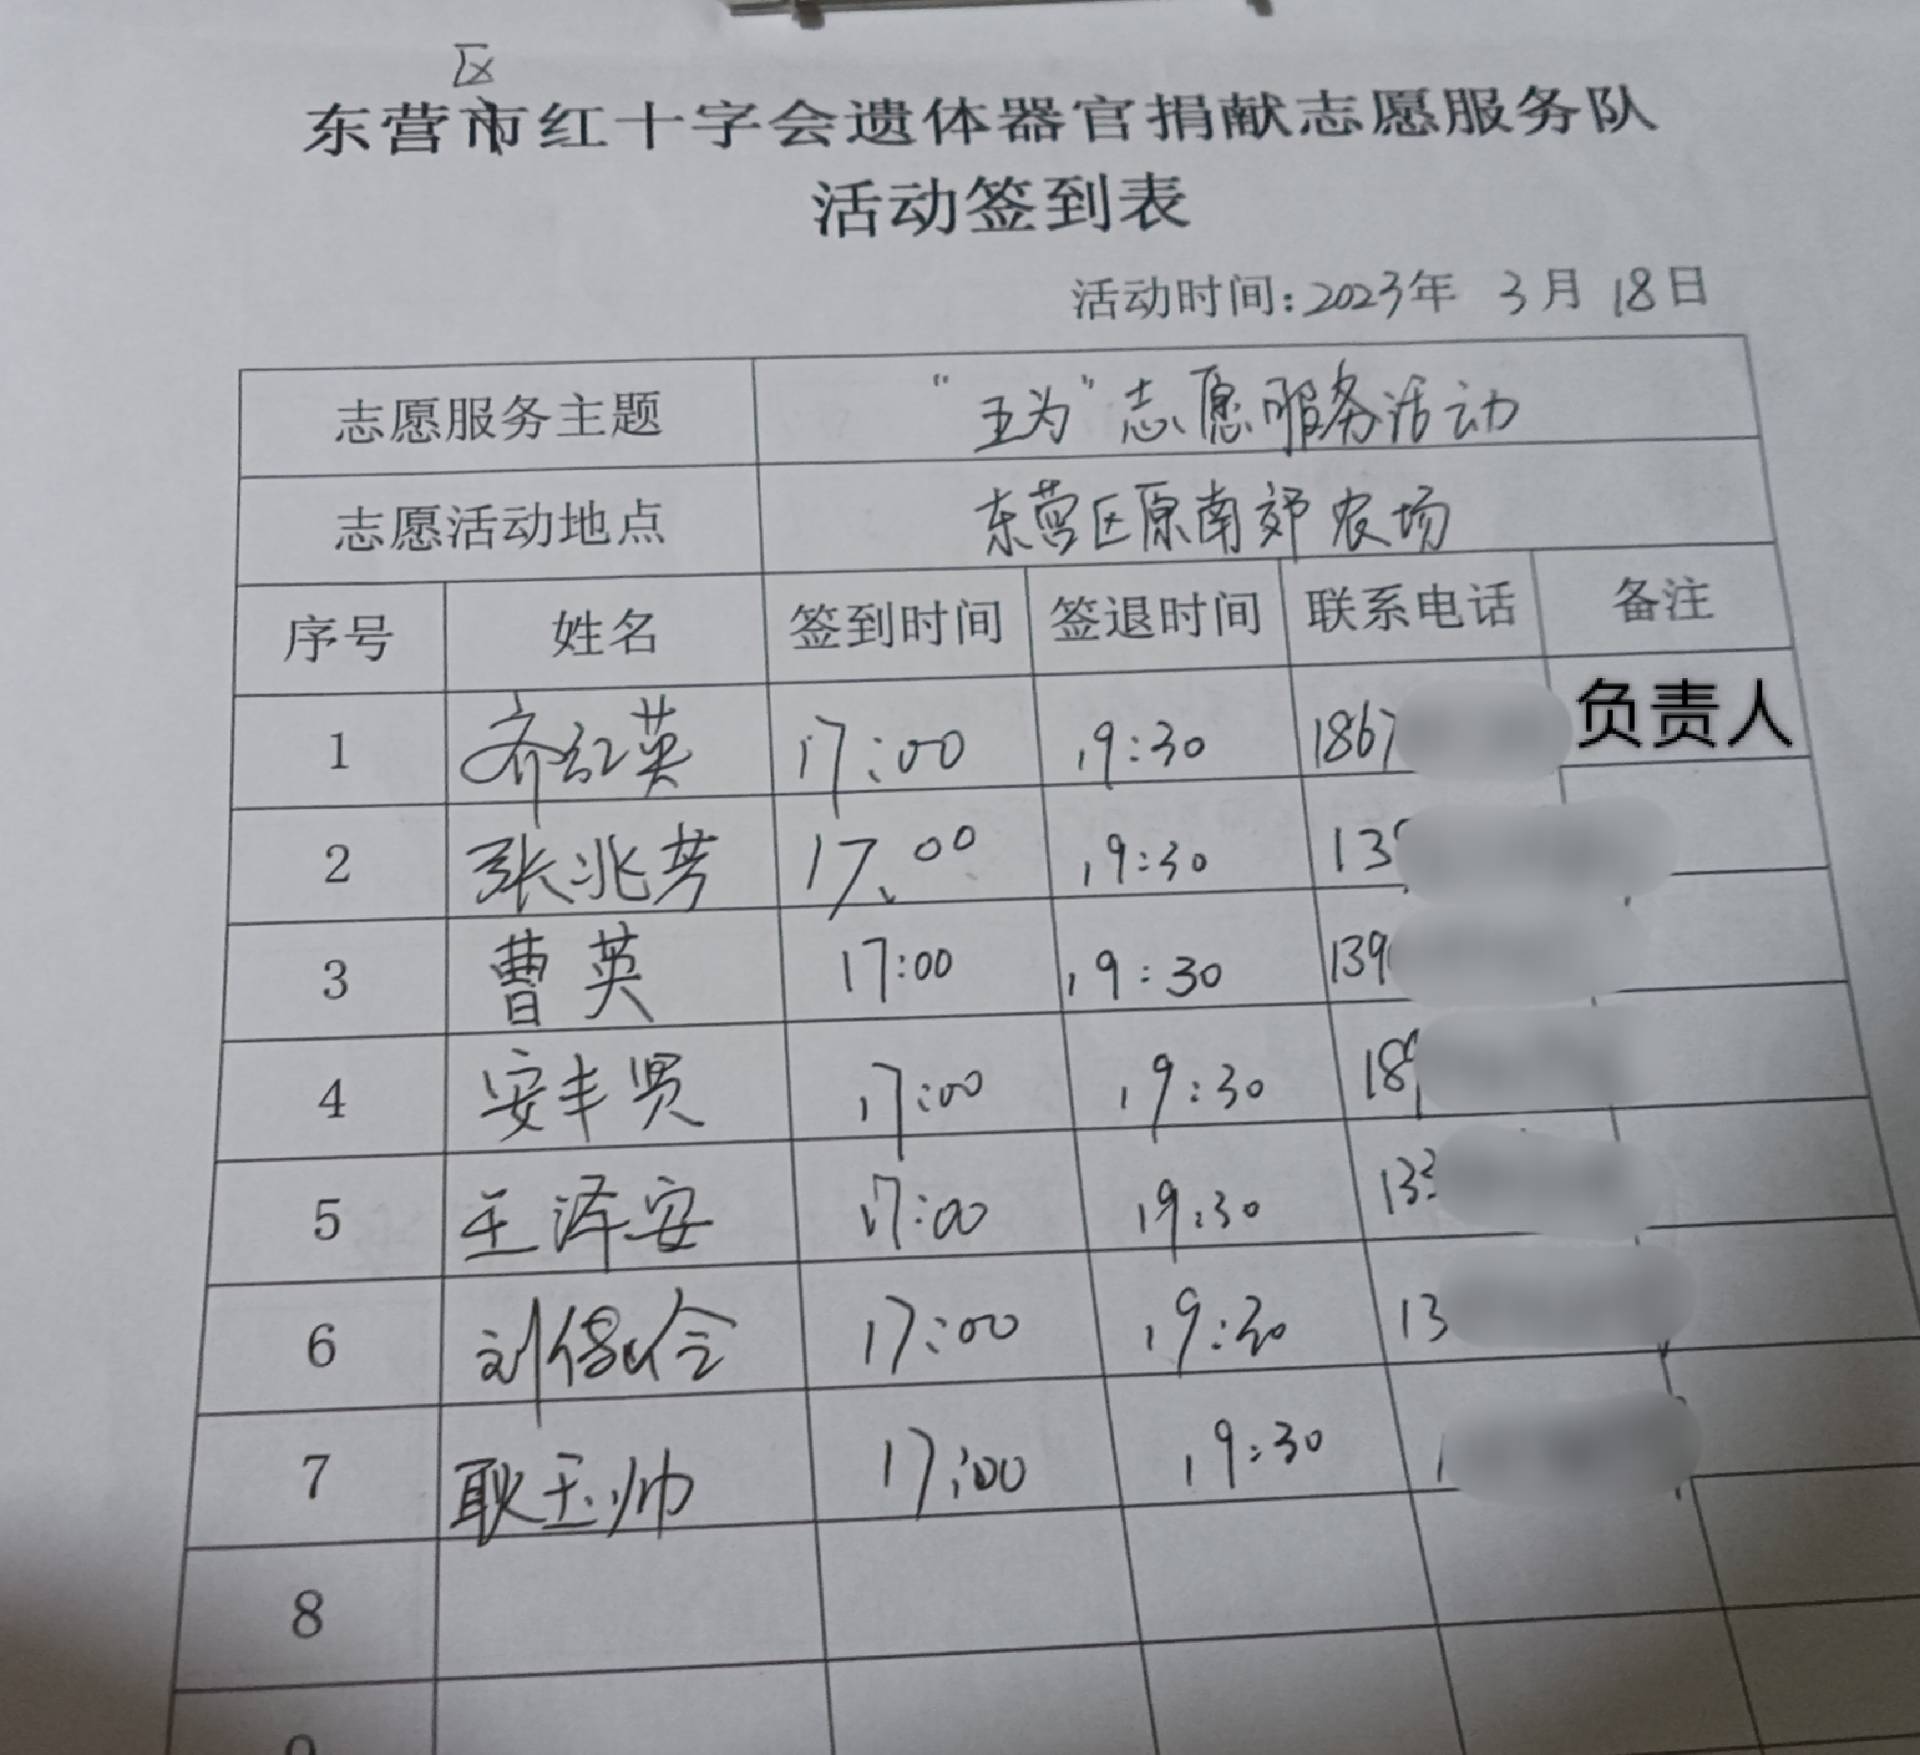 区
东营市红十字会遗体器官捐献志愿服务队
活动签到表
活动时间：2023年 3月 18日
志愿服务主题 "王为"志愿服务活动
志愿活动地点 东营区原南郊农场
序号 姓名 签到时间 签退时间 联系电话 备注
1 齐红英 17:00 19:30 1867 负责人
2 张兆芳 17:00 19:30 13
3 曹英 17:00 19:30 139
4 安丰贤 17:00 19:30 18
5 王泽安 17:00 19:30 133
6 刘 17:00 19:30 13
7 耿玉帅 17:00 19:30 1
8
9